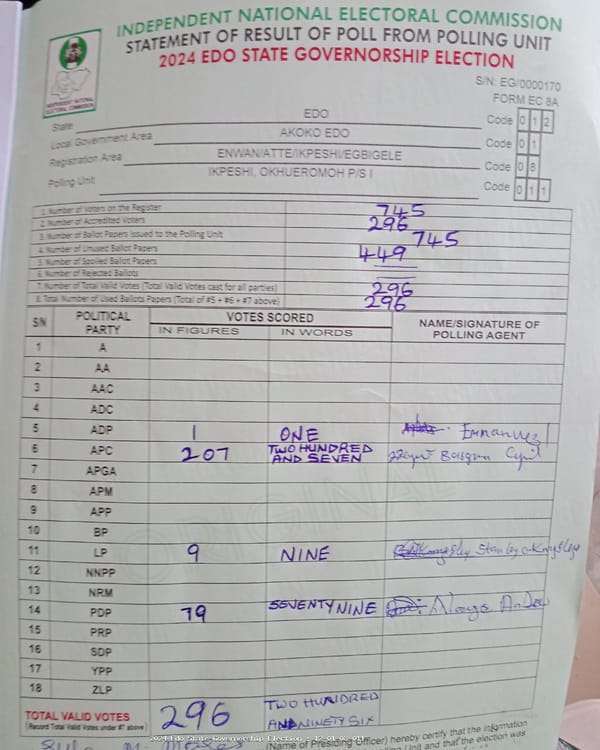 INDEPENDENT NATIONAL ELECTORAL COMMISSION
STATEMENT OF RESULT OF POLL FROM POLLING UNIT
2024 EDO STATE GOVERNORSHIP ELECTION
INDEPENDENT NATIONAL ELECTORAL COMMISSION
S/N: EG/0000170
FORM EC 8A
State EDO Code 0 1 2
Local Government Area AKOKO EDO Code 0 1
Registration Area ENWAN/ATTE/IKPESHI/EGBIGELE Code 0 8
Polling Unit IKPESHI, OKHUEROMOH P/S I Code 0 1 1
1. Number of Voters on the Register 745
2. Number of Accredited Voters 296
3. Number of Ballot Papers Issued to the Polling Unit 745
4. Number of Unused Ballot Papers 449
5. Number of Spoiled Ballot Papers
6. Number of Rejected Ballots
7. Number of Total Valid Votes (Total Valid Votes cast for all parties) 296
8. Total Number of Used Ballots Papers (Total of #5 + #6 + #7 above) 296
S/N POLITICAL PARTY VOTES SCORED NAME/SIGNATURE OF POLLING AGENT
IN FIGURES IN WORDS
1 A
2 AA
3 AAC
4 ADC
5 ADP 1 ONE Emmanuel
6 APC 207 TWO HUNDRED AND SEVEN
7 APGA
8 APM
9 APP
10 BP
11 LP 9 NINE Stanley
12 NNPP
13 NRM
14 PDP 79 SEVENTY NINE
15 PRP
16 SDP
17 YPP
18 ZLP
TOTAL VALID VOTES 296 TWO HUNDRED AND NINETY SIX
(Record Total Valid Votes under #7 above)
(Name of Presiding Officer) hereby certify that the information
Unit and that the election was
2024 Edo State Governorship Election - 12-01-08-011